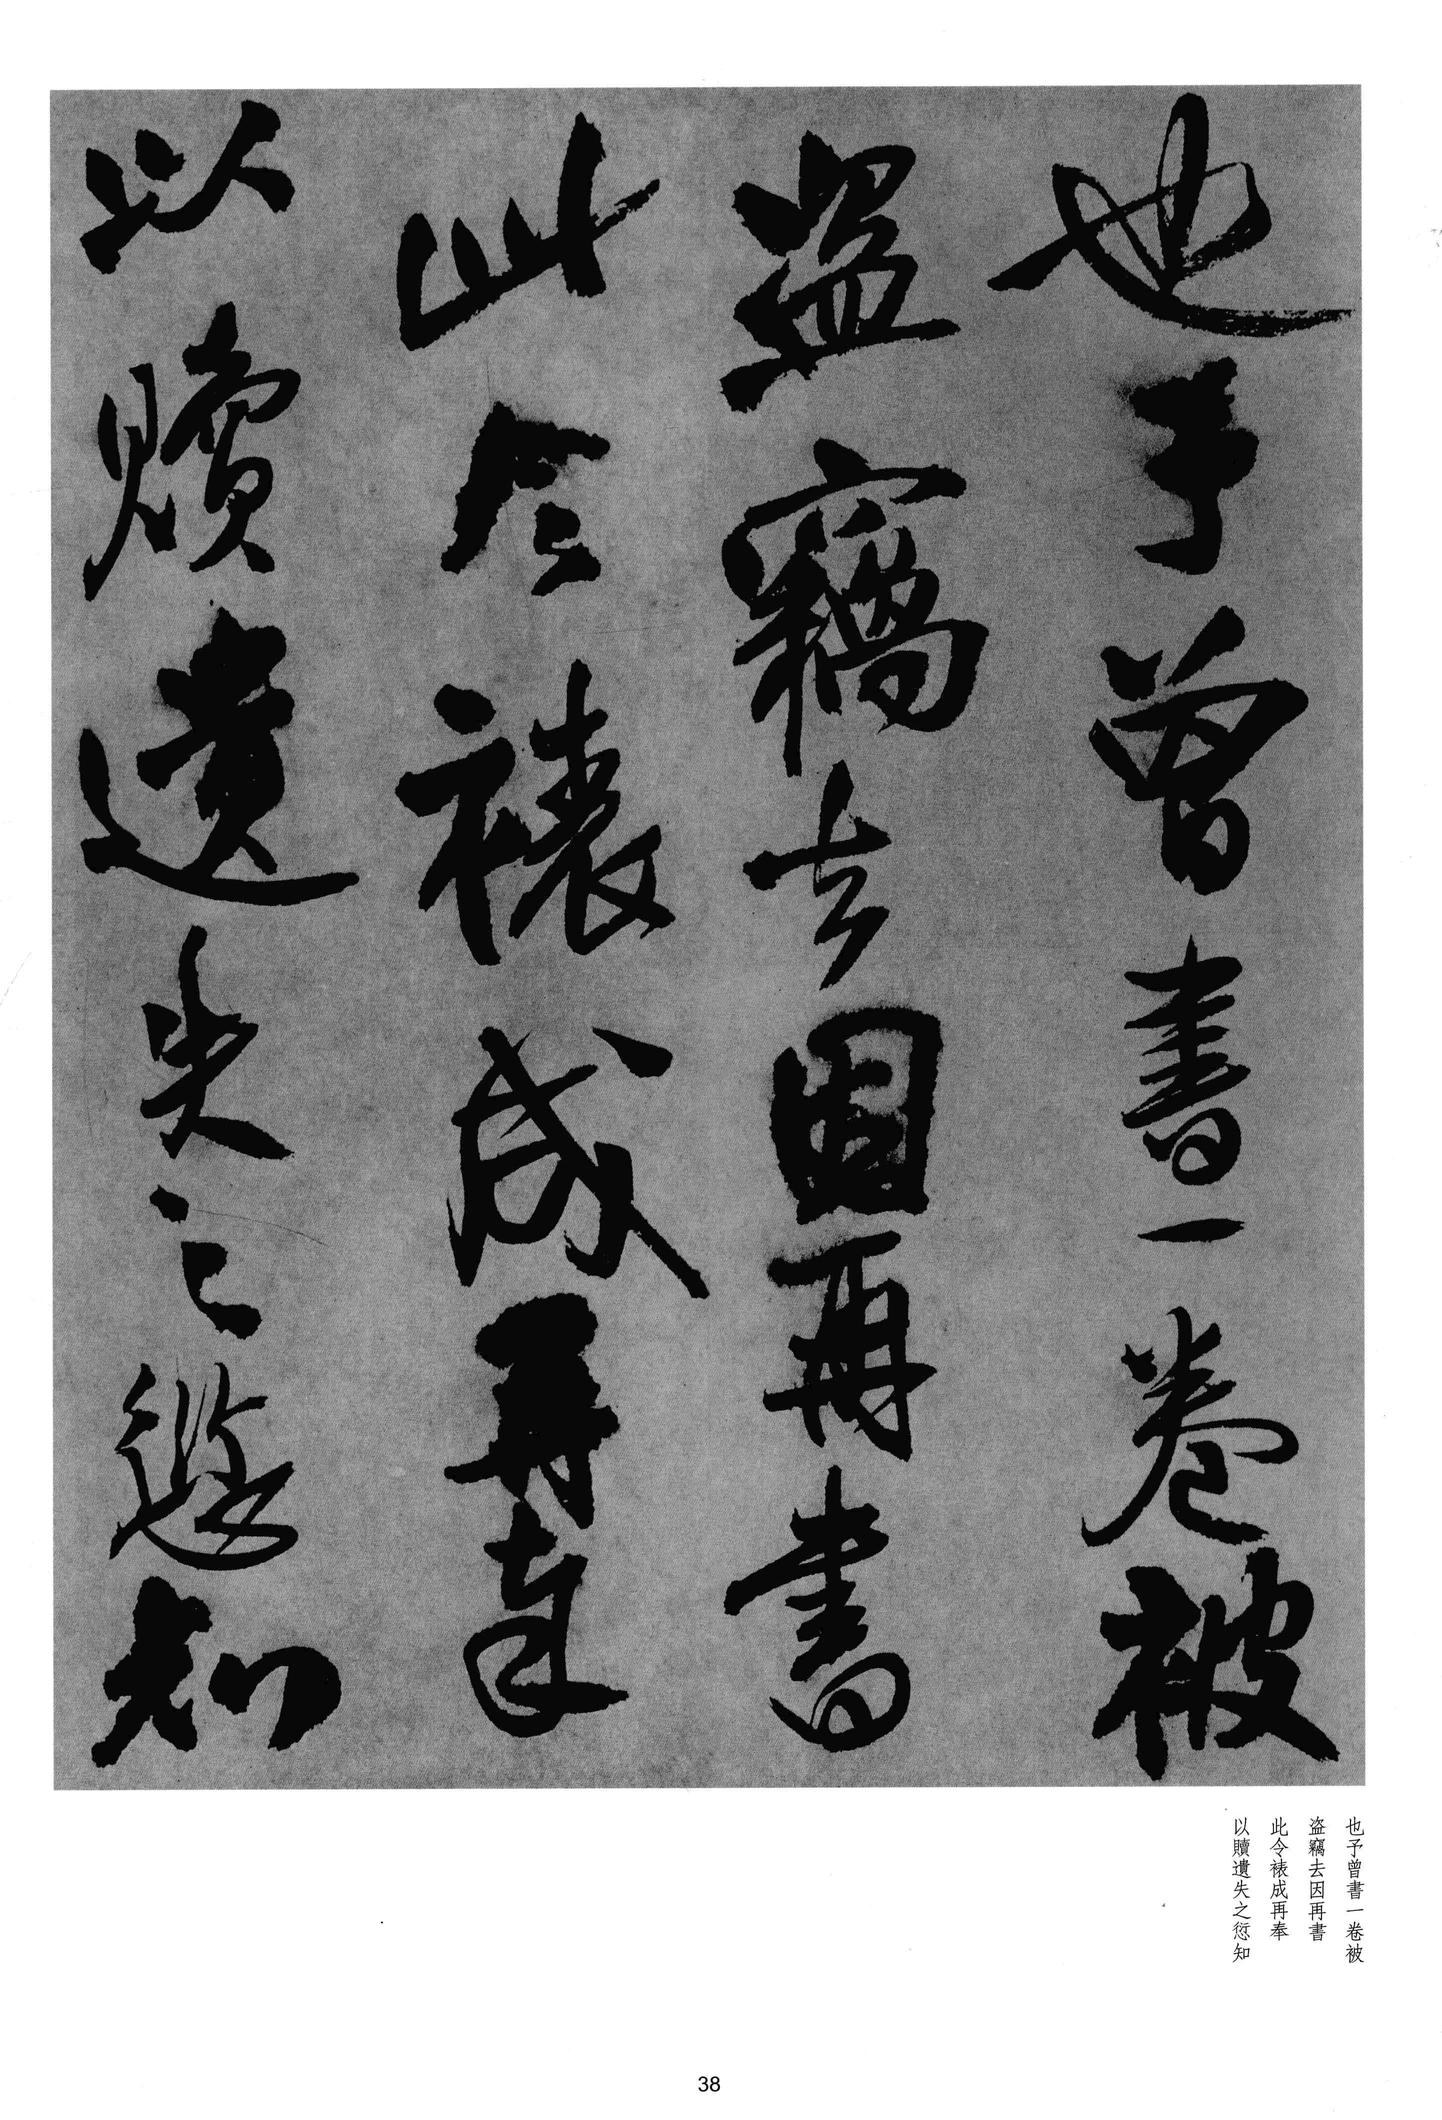 也予曾書一卷被
盜竊去因再書
此令裱成再奉
以贖遺失之愆知
也予曾書一卷被
盜竊去因再書
此令裱成再奉
以贖遺失之愆知
38